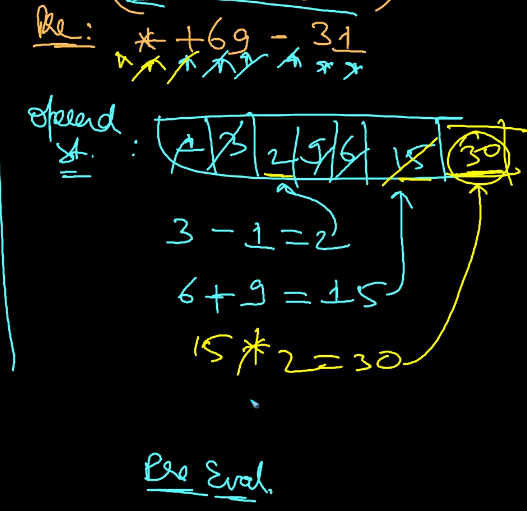 Pre: * + 6 9 - 3 1
operand
st. : 1 3 2 9 6 15 30
3 - 1 = 2
6 + 9 = 15
15 * 2 = 30
Pre Eval.